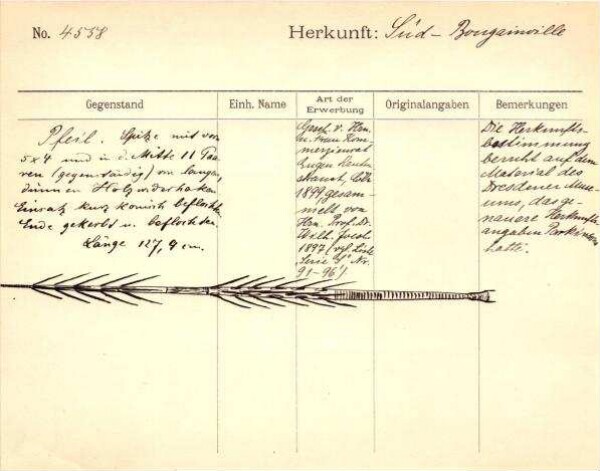 No. 4558 Herkunft: Süd-Bougainville
Gegenstand
Einh. Name
Art der
Erwerbung
Originalangaben
Bemerkungen
Pfeil. Spitze mit vorn
5x4 und in d. Mitte 11 Paa-
ren (gegenständig) von langen,
dünnen Holzwiderhaken.
Einsatz kurz konisch beflochten.
Ende gekerbt u. beflochten.
Länge 127,9 cm.
Gesch. v. Hrn.
u. Frau Kom-
merzienrat
Eugen
1899, gesam-
melt von
Hrn. Prof. Dr.
Wilh. Joest
1897 (vgl. Liste
"Serie S" Nr.
91-96)
Die Herkunfts-
bestimmung
beruht auf dem
Material des
Dresdener Muse-
ums, das ge-
nauere Herkunfts-
angaben Parkinsons
hatte.